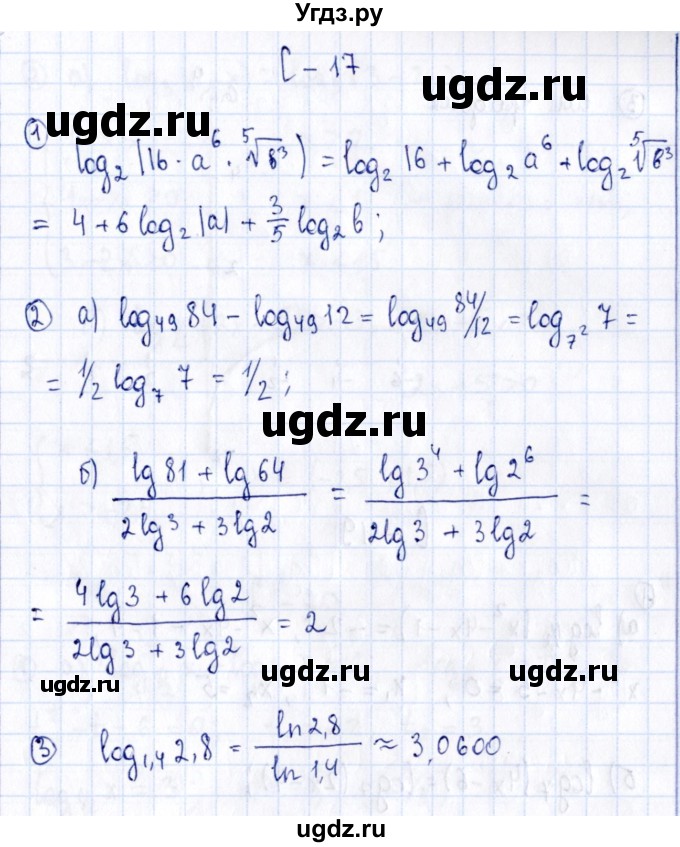 Угдз.ру
С - 17
ugdz.ru ugdz.ru
① log₂(16 · a⁶ · ⁵√b³) = log₂ 16 + log₂ a⁶ + log₂ ⁵√b³
= 4 + 6 log₂ |a| + 3/5 log₂ b ;
② а) log₄₉ 84 - log₄₉ 12 = log₄₉ 84/12 = log_{7²} 7 =
= 1/2 log₇ 7 = 1/2 ;
ugdz.ru ugdz.ru
б) (lg 81 + lg 64)/(2 lg 3 + 3 lg 2) = (lg 3⁴ + lg 2⁶)/(2 lg 3 + 3 lg 2) =
= (4 lg 3 + 6 lg 2)/(2 lg 3 + 3 lg 2) = 2
ugdz.ru ugdz.ru ugdz.ru
③ log₁,₄ 2,8 = ln 2,8 / ln 1,4 ≈ 3,0600
ugdz.ru